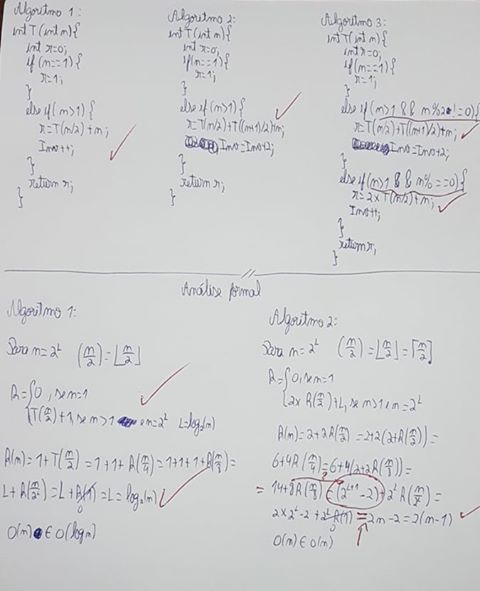 Algoritmo 1:
int T(int n){
int r=0;
if(n==1){
r=1;
}
else if(n>1){
r=T(n/2)+n;
Inv++;
}
return r;
}
Algoritmo 2:
int T(int n){
int r=0;
if(n==1){
r=1;
}
else if(n>1){
r=T(n/2)+T((n+1)/2)+n;
Inv=Inv+2;
}
return r;
}
Algoritmo 3:
int T(int n){
int r=0;
if(n==1){
r=1;
}
else if(n>1 && n%2!=0){
r=T(n/2)+T((n+1)/2)+n;
Inv=Inv+2;
}
else if(n>1 && n%==0){
r=2xT(n/2)+n;
Inv++;
}
return r;
}
Análise formal
Algoritmo 1:
Para n=2^L (n/2)=⌊n/2⌋
R={0, se n=1
{T(n/2)+1, se n>1 e n=2^L L=log₂(n)
R(n)=1+T(n/2)=1+1+R(n/4)=1+1+1+R(n/8)=
L+R(n/2^L)=L+R(1)=L=log₂(n)
0
O(n) ∈ O(log n)
Algoritmo 2:
Para n=2^L (n/2)=⌊n/2⌋=⌈n/2⌉
R={0, se n=1
{2xR(n/2)+L, se n>1 e n=2^L
R(n)=2+2R(n/2)=2+2(2+R(n/2))=
6+4R(n/4)=6+4(2+2R(n/8))=
=14+8R(n/8)=(2^L+1-2)+2^L R(n/2^L)=
2x2^L-2+2^L R(1)=2n-2=2(n-1)
0
O(n) ∈ O(n)